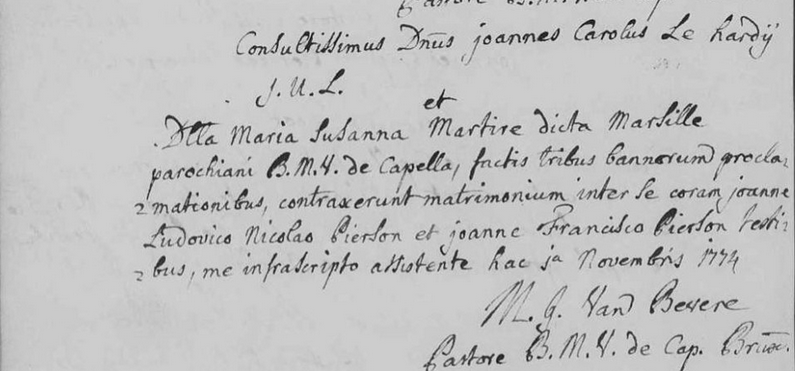 Consultissimus Dnūs joannes Carolus Le hardÿ
J. U. L.
et
Dlla Maria Susanna Martire dicta Marsille
parochiani B. M. V. de Capella, factis tribus bannorum procla-
-mationibus, contraxerunt matrimonium inter se coram joanne
Ludovico Nicolao Pierson et joanne Francisco Pierson testi-
-bus, me infrascripto assistente hac Novembris 1774
M. J. Vand Bevere
Pastore B. M. V. de Cap. Brux.